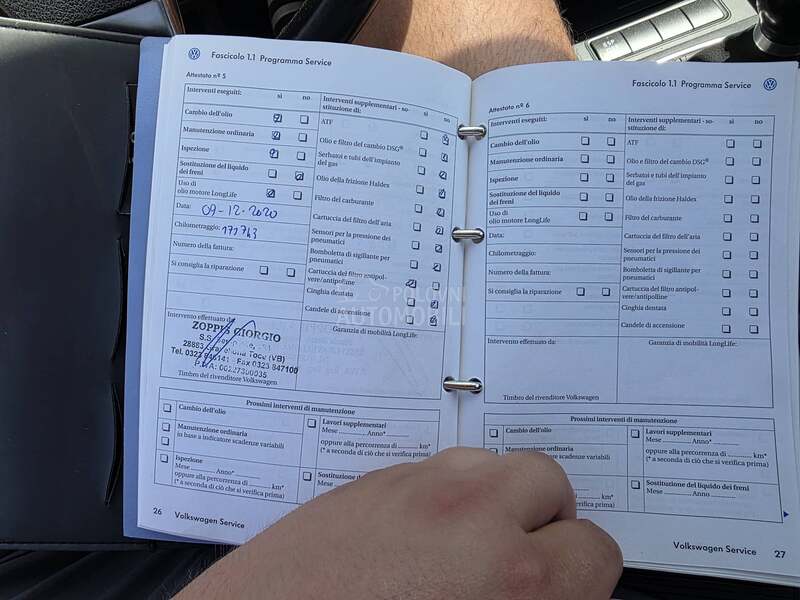 Fascicolo 1.1 Programma Service
Attestato nº 5
Interventi eseguiti: sì no
Cambio dell'olio
Manutenzione ordinaria
Ispezione
Sostituzione del liquido
dei freni
Uso di
olio motore LongLife
Data: 09-12-2020
Chilometraggio: 171743
Numero della fattura:
Si consiglia la riparazione
Intervento effettuato da:
ZOPPIS GIORGIO
Tel. 0323 846141 - Fax 0323 847100
Timbro del rivenditore Volkswagen
Interventi supplementari - so-
stituzione di: sì no
ATF
Olio e filtro del cambio DSG®
Serbatoi e tubi dell'impianto
del gas
Olio della frizione Haldex
Filtro del carburante
Cartuccia del filtro dell'aria
Sensori per la pressione dei
pneumatici
Bomboletta di sigillante per
pneumatici
Cartuccia del filtro antipol-
vere/antipolline
Cinghia dentata
Candele di accensione
Garanzia di mobilità LongLife:
Prossimi interventi di manutenzione
Cambio dell'olio
Manutenzione ordinaria
in base a indicatore scadenze variabili
Ispezione
Mese Anno*
oppure alla percorrenza di km*
(* a seconda di ciò che si verifica prima)
Lavori supplementari
Mese Anno*
oppure alla percorrenza di km*
(* a seconda di ciò che si verifica prima)
Sostituzione
Mese
26 Volkswagen Service
Fascicolo 1.1 Programma Service
Attestato nº 6
Interventi eseguiti: sì no
Cambio dell'olio
Manutenzione ordinaria
Ispezione
Sostituzione del liquido
dei freni
Uso di
olio motore LongLife
Data:
Chilometraggio:
Numero della fattura:
Si consiglia la riparazione
Intervento effettuato da:
Timbro del rivenditore Volkswagen
Interventi supplementari - so-
stituzione di: sì no
ATF
Olio e filtro del cambio DSG®
Serbatoi e tubi dell'impianto
del gas
Olio della frizione Haldex
Filtro del carburante
Cartuccia del filtro dell'aria
Sensori per la pressione dei
pneumatici
Bomboletta di sigillante per
pneumatici
Cartuccia del filtro antipol-
vere/antipolline
Cinghia dentata
Candele di accensione
Garanzia di mobilità LongLife:
Prossimi interventi di manutenzione
Cambio dell'olio
Manutenzione ordinaria
scadenze variabili
km*
verifica prima)
Lavori supplementari
Mese Anno*
oppure alla percorrenza di km*
(* a seconda di ciò che si verifica prima)
Sostituzione del liquido dei freni
Mese Anno
Volkswagen Service 27
POLOVNI
AUTOMOBILI